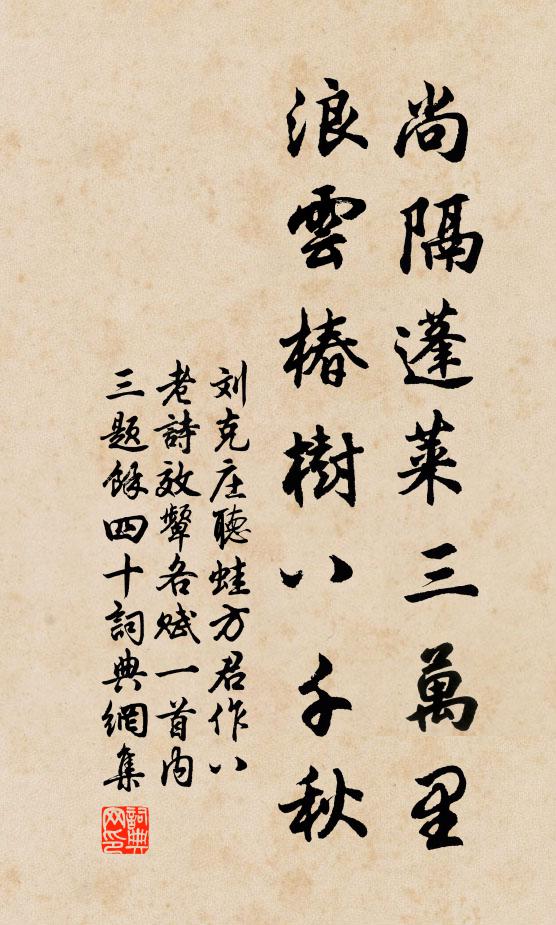 尚隔蓬萊三萬里
浪雲椿樹八千秋
刘克庄聽蛙方君作八
老詩效顰各賦一首內
三題餘四十詞典網集
詞典
网印